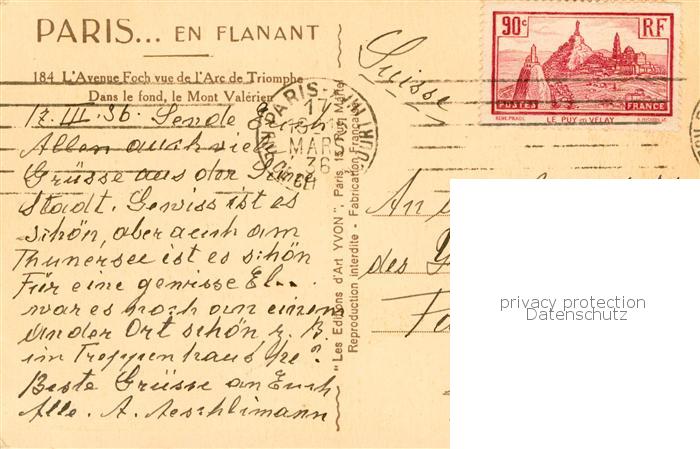 PARIS... EN FLANANT
184 L'Avenue Foch vue de l'Arc de Triomphe
Dans le fond, le Mont Valérien
17. III. 36. Sende Euch
Allen auch viele
Grüsse aus der
Stadt. Gewiss ist es
schön, aber auch am
Thunersee ist es schön
Für eine gewisse El...
war es noch an einem
ander Ort schön, z. B.
im Treppenhaus he?
Beste Grüsse an Euch
Alle. A. Aeschlimann
"Les Editions d'Art YVON", Paris, 15, Rue Martel
Reproduction interdite - Fabrication Française
PARIS
17
MARS
36
Suisse
90c RF
POSTES FRANCE
LE PUY EN VELAY
An
des
privacy protection
Datenschutz